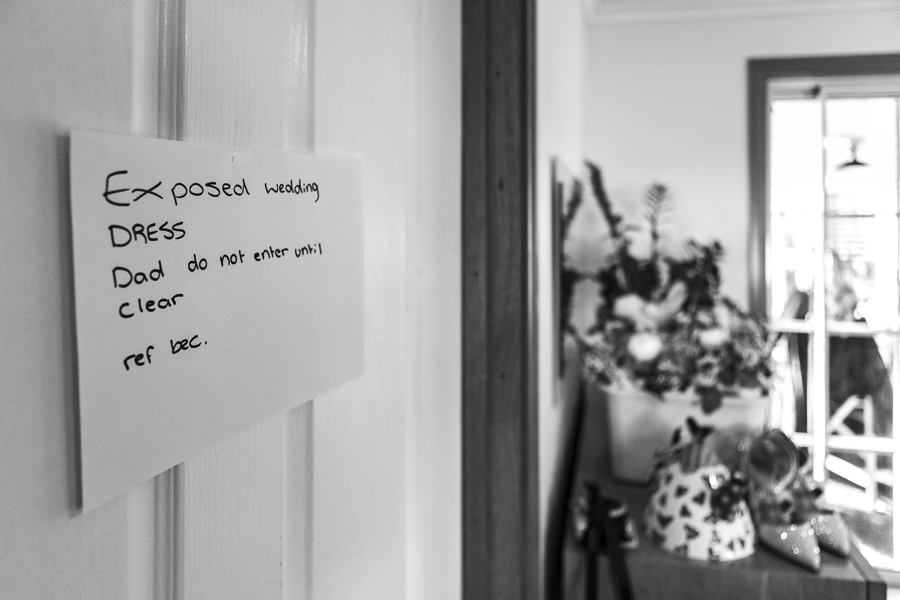 Exposed wedding
DRESS
Dad do not enter until
clear
ref bec.